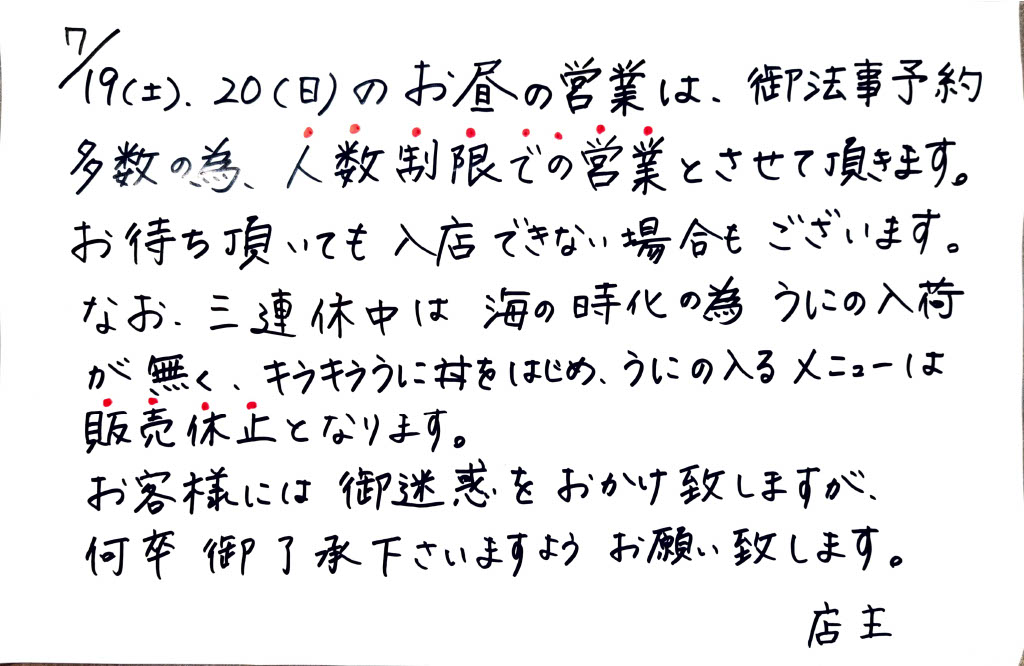 7/19(土)、20(日)のお昼の営業は、御法事予約
多数の為、人数制限での営業とさせて頂きます。
お待ち頂いても入店できない場合もございます。
なお、三連休中は海の時化の為うにの入荷
が無く、キラキラうに丼をはじめ、うにの入るメニューは
販売休止となります。
お客様には御迷惑をおかけ致しますが、
何卒御了承下さいますようお願い致します。
店主